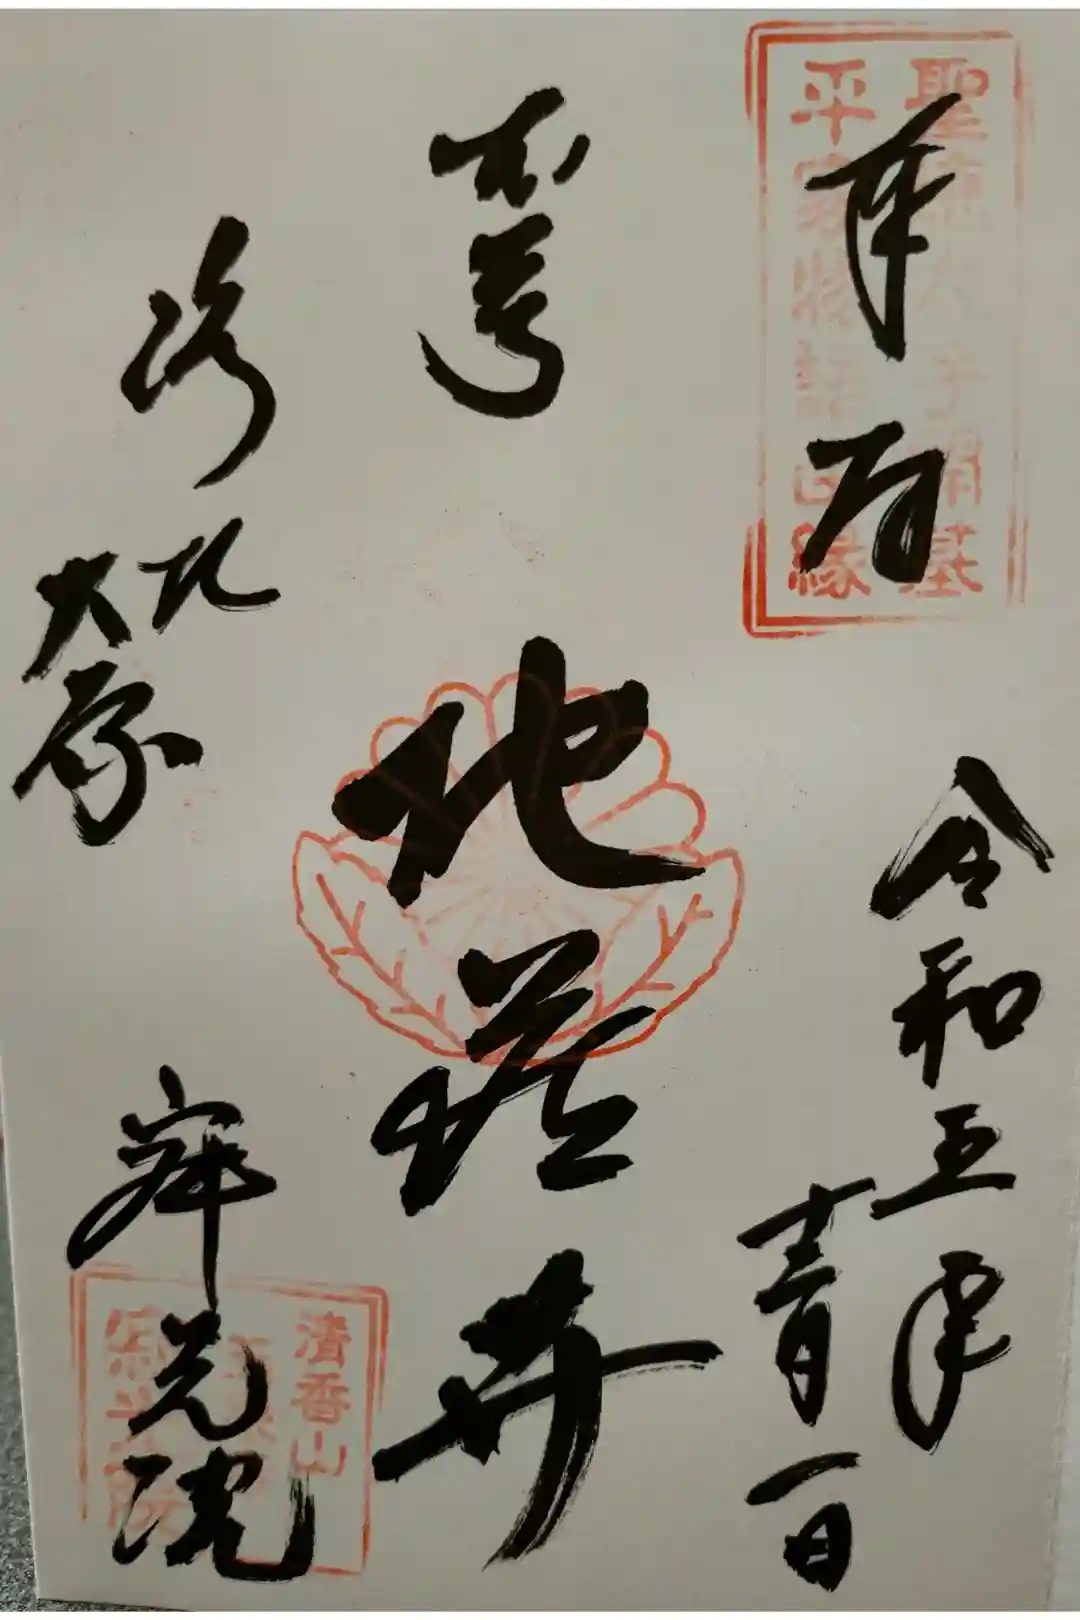 奉拝
聖徳太子開基
平家物語由縁
令和五年
十二月一日
地蔵𦬇
洛北
大原
寂光院
清香山
寂光院